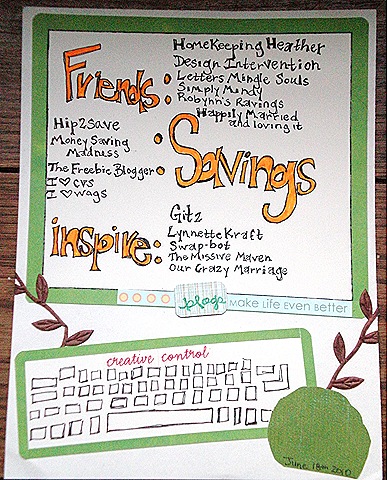 Friends:
HomeKeeping Heather
Design Intervention
Letters Mingle Souls
Simply Mindy
Robynn's Ravings
Happily Married
and loving it
:Savings
Hip2Save
Money Saving
Madness
The Freebie Blogger
I ♡ CVS
I ♡ wags
inspire:
Gitz
Lynnette Kraft
Swap-bot
The Missive Maven
Our Crazy Marriage
blogs Make Life Even Better
creative control
June 18th 2010